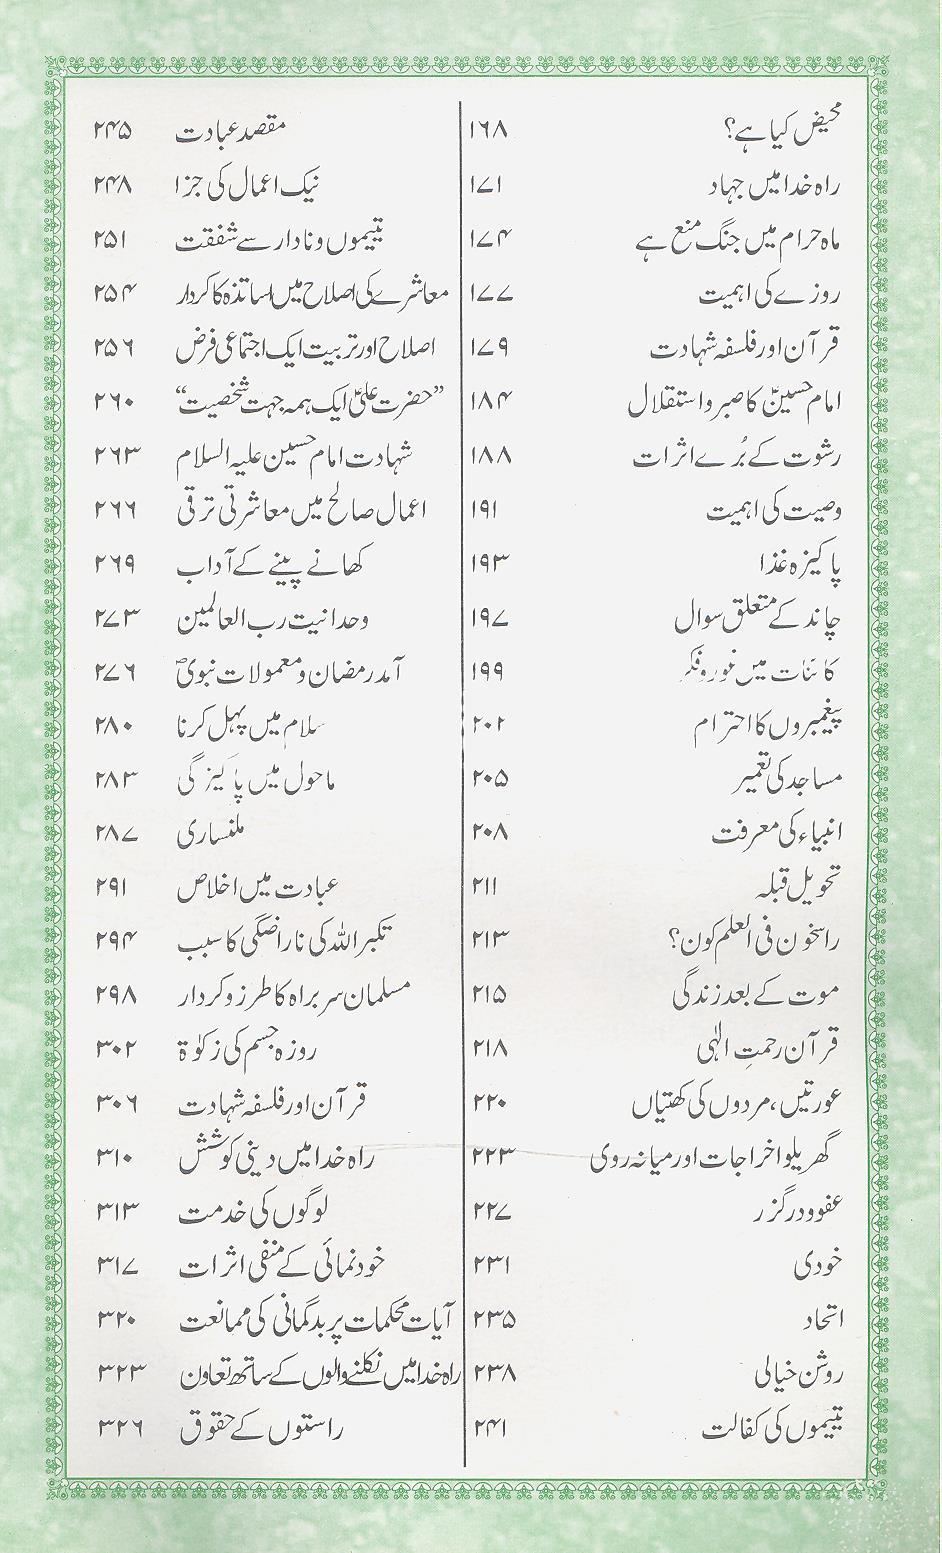 محیض کیا ہے؟ ۱۶۸
راہ خدا میں جہاد ۱۷۱
ماہ حرام میں جنگ منع ہے ۱۷۴
روزے کی اہمیت ۱۷۷
قرآن اور فلسفہ شہادت ۱۷۹
امام حسینؑ کا صبر و استقلال ۱۸۴
رشوت کے بُرے اثرات ۱۸۸
وصیت کی اہمیت ۱۹۱
پاکیزہ غذا ۱۹۳
چاند کے متعلق سوال ۱۹۷
کائنات میں غور و فکر ۱۹۹
پیغمبروں کا احترام ۲۰۲
مساجد کی تعمیر ۲۰۵
انبیاء کی معرفت ۲۰۸
تحویل قبلہ ۲۱۱
راسخون فی العلم کون؟ ۲۱۳
موت کے بعد زندگی ۲۱۵
قرآن رحمتِ الٰہی ۲۱۸
عورتیں، مردوں کی کھتیاں ۲۲۰
گھریلو اخراجات اور میانہ روی ۲۲۳
عفو و درگزر ۲۲۷
خودی ۲۳۱
اتحاد ۲۳۵
روشن خیالی ۲۳۸
یتیموں کی کفالت ۲۴۱
مقصد عبادت ۲۴۵
نیک اعمال کی جزا ۲۴۸
یتیموں و نادار سے شفقت ۲۵۱
معاشرے کی اصلاح میں اساتذہ کا کردار ۲۵۴
اصلاح اور تربیت ایک اجتماعی فرض ۲۵۶
”حضرت علیؑ ایک ہمہ جہت شخصیت“ ۲۶۰
شہادت امام حسین علیہ السلام ۲۶۳
اعمال صالح میں معاشرتی ترقی ۲۶۶
کھانے پینے کے آداب ۲۶۹
وحدانیت رب العالمین ۲۷۳
آمد رمضان و معمولات نبویؐ ۲۷۶
سلام میں پہل کرنا ۲۸۰
ماحول میں پاکیزگی ۲۸۳
ملنساری ۲۸۷
عبادت میں اخلاص ۲۹۱
تکبر اللہ کی ناراضگی کا سبب ۲۹۴
مسلمان سربراہ کا طرز و کردار ۲۹۸
روزہ جسم کی زکوٰۃ ۳۰۲
قرآن اور فلسفہ شہادت ۳۰۶
راہ خدا میں دینی کوشش ۳۱۰
لوگوں کی خدمت ۳۱۳
خودنمائی کے منفی اثرات ۳۱۷
آیات محکمات پر بدگمانی کی ممانعت ۳۲۰
راہ خدا میں نکلنے والوں کے ساتھ تعاون ۳۲۳
راستوں کے حقوق ۳۲۶